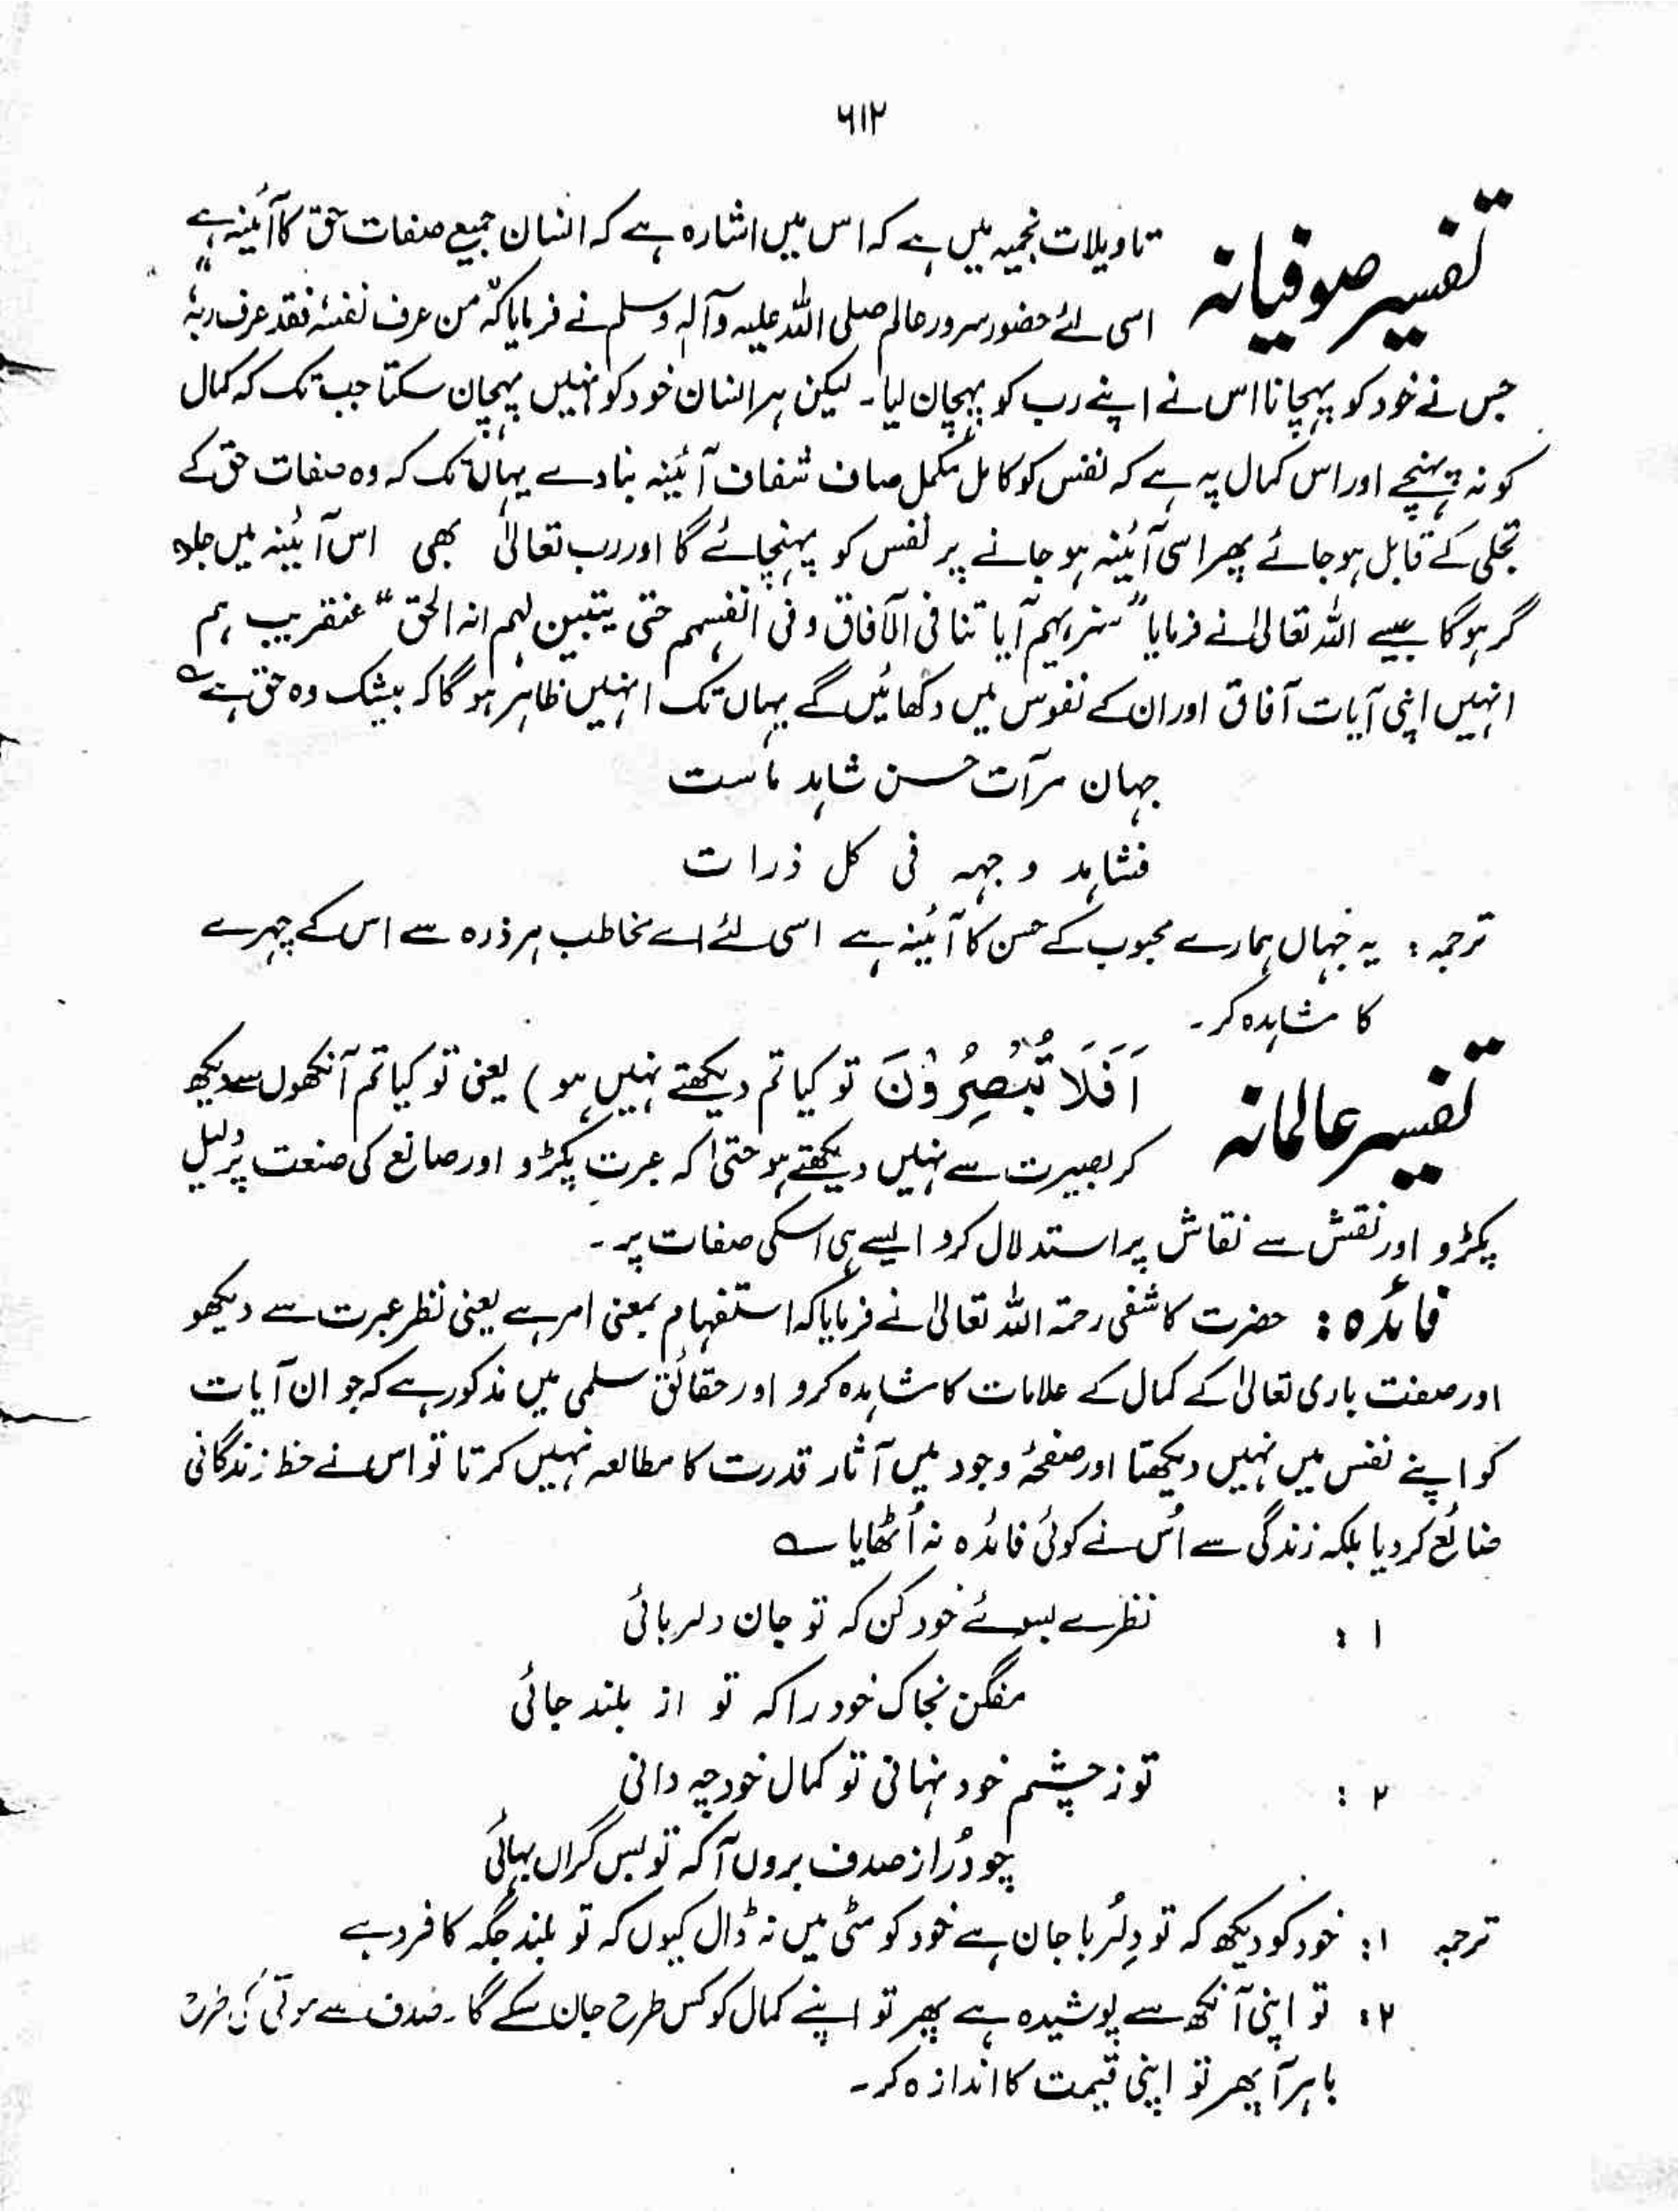 ۶۱۲
تفسیر صوفیانہ
تاویلات نجمیہ میں ہے کہ اس میں اشارہ ہے کہ انسان جمیع صفات حق کا آئینہ ہے
اسی لئے حضور سرور عالم صلی اللہ علیہ وآلہ وسلم نے فرمایا کہ "من عرف نفسہٗ فقد عرف ربہٗ"
جس نے خود کو پہچانا اس نے اپنے رب کو پہچان لیا۔ لیکن ہر انسان خود کو نہیں پہچان سکتا جب تک کہ کمال
کو نہ پہنچے اور اس کمال یہ ہے کہ نفس کو کامل مکمل صاف شفاف آئینہ بنا دے یہاں تک کہ وہ صفات حق کے
تجلی کے قابل ہو جائے پھر اسی آئینہ ہو جانے پر نفس کو پہنچائے گا اور رب تعالیٰ بھی اس آئینہ میں جلوہ
گر ہوگا جیسے اللہ تعالیٰ نے فرمایا "سنریہم آیاتنا فی الآفاق وفی انفسہم حتی یتبین لہم انہ الحق" عنقریب ہم
انہیں اپنی آیات آفاق اور ان کے نفوس میں دکھائیں گے یہاں تک انہیں ظاہر ہو گا کہ بیشک وہ حق ہے ؎
جہان مرآت حسن شاہد ماست
فشاہد وجہہ فی کل ذرات
ترجمہ : یہ جہاں ہمارے محبوب کے حسن کا آئینہ ہے اسی لئے اے مخاطب ہر ذرہ سے اس کے چہرے
کا مشاہدہ کر۔
تفسیر عالمانہ
اَفَلَا تُبْصِرُوْنَ تو کیا تم دیکھتے نہیں ہو) یعنی تو کیا تم آنکھوں سے دیکھ
کر بصیرت سے نہیں دیکھتے ہو حتیٰ کہ عبرت پکڑو اور صانع کی صنعت پر دلیل
پکڑو اور نقش سے نقاش پر استدلال کرو ایسے ہی اسکی صفات پر۔
فائدہ : حضرت کاشفی رحمۃ اللہ تعالیٰ نے فرمایا کہ استفہام بمعنی امر ہے یعنی نظر عبرت سے دیکھو
اور صفت باری تعالیٰ کے کمال کے علامات کا مشاہدہ کرو اور حقائق سلمی میں مذکور ہے کہ جو ان آیات
کو اپنے نفس میں نہیں دیکھتا اور صفحۂ وجود میں آثار قدرت کا مطالعہ نہیں کرتا تو اس نے حظ زندگانی
ضائع کر دیا بلکہ زندگی سے اُس نے کوئی فائدہ نہ اُٹھایا ؎
۱ : نظرے بسوئے خود کن کہ تو جان دلربائی
مفگن بخاک خود را کہ تو از بلند جائی
۲ : تو ز چشم خود نہانی تو کمال خود چہ دانی
چو دُر از صدف بروں آ کہ تو بس گراں بہائی
ترجمہ ۱: خود کو دیکھ کہ تو دلرُبا جان ہے خود کو مٹی میں نہ ڈال کیوں کہ تو بلند جگہ کا فرد ہے
۲: تو اپنی آنکھ سے پوشیدہ ہے پھر تو اپنے کمال کو کس طرح جان سکے گا۔ صدف سے موتی کی طرح
باہر آ پھر تو اپنی قیمت کا اندازہ کر۔